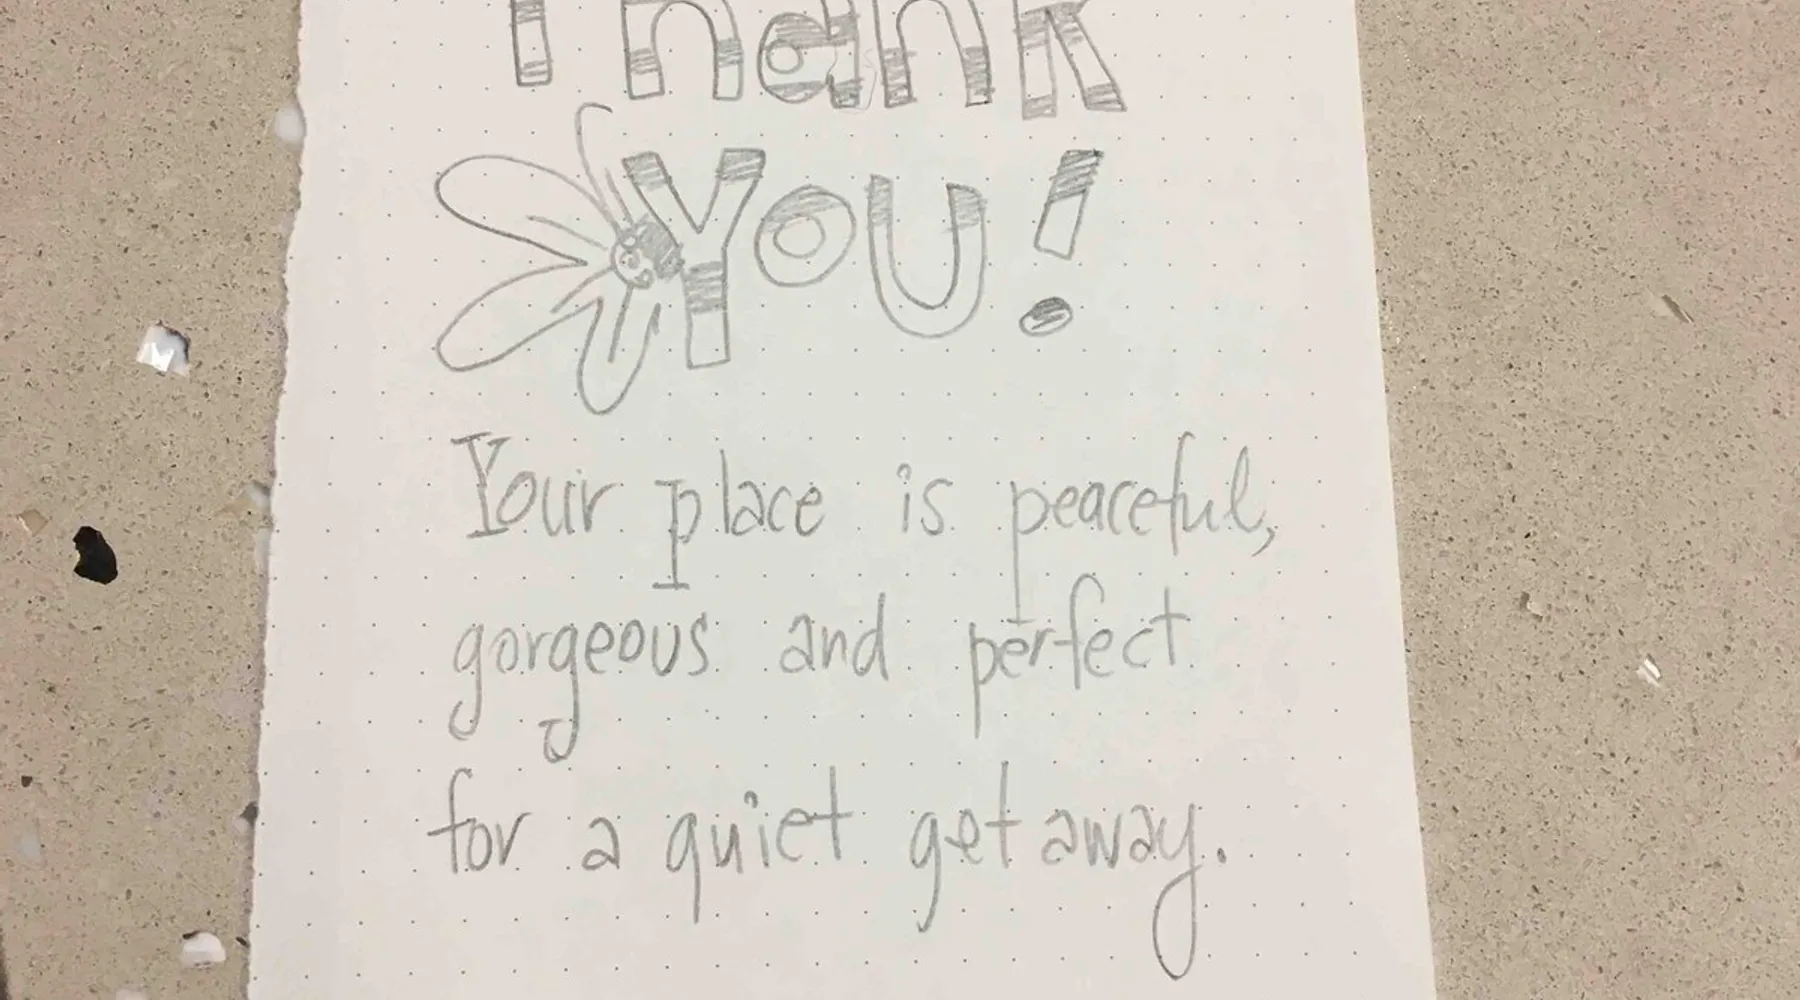 Thank
You!
Your place is peaceful,
gorgeous and perfect
for a quiet get away.